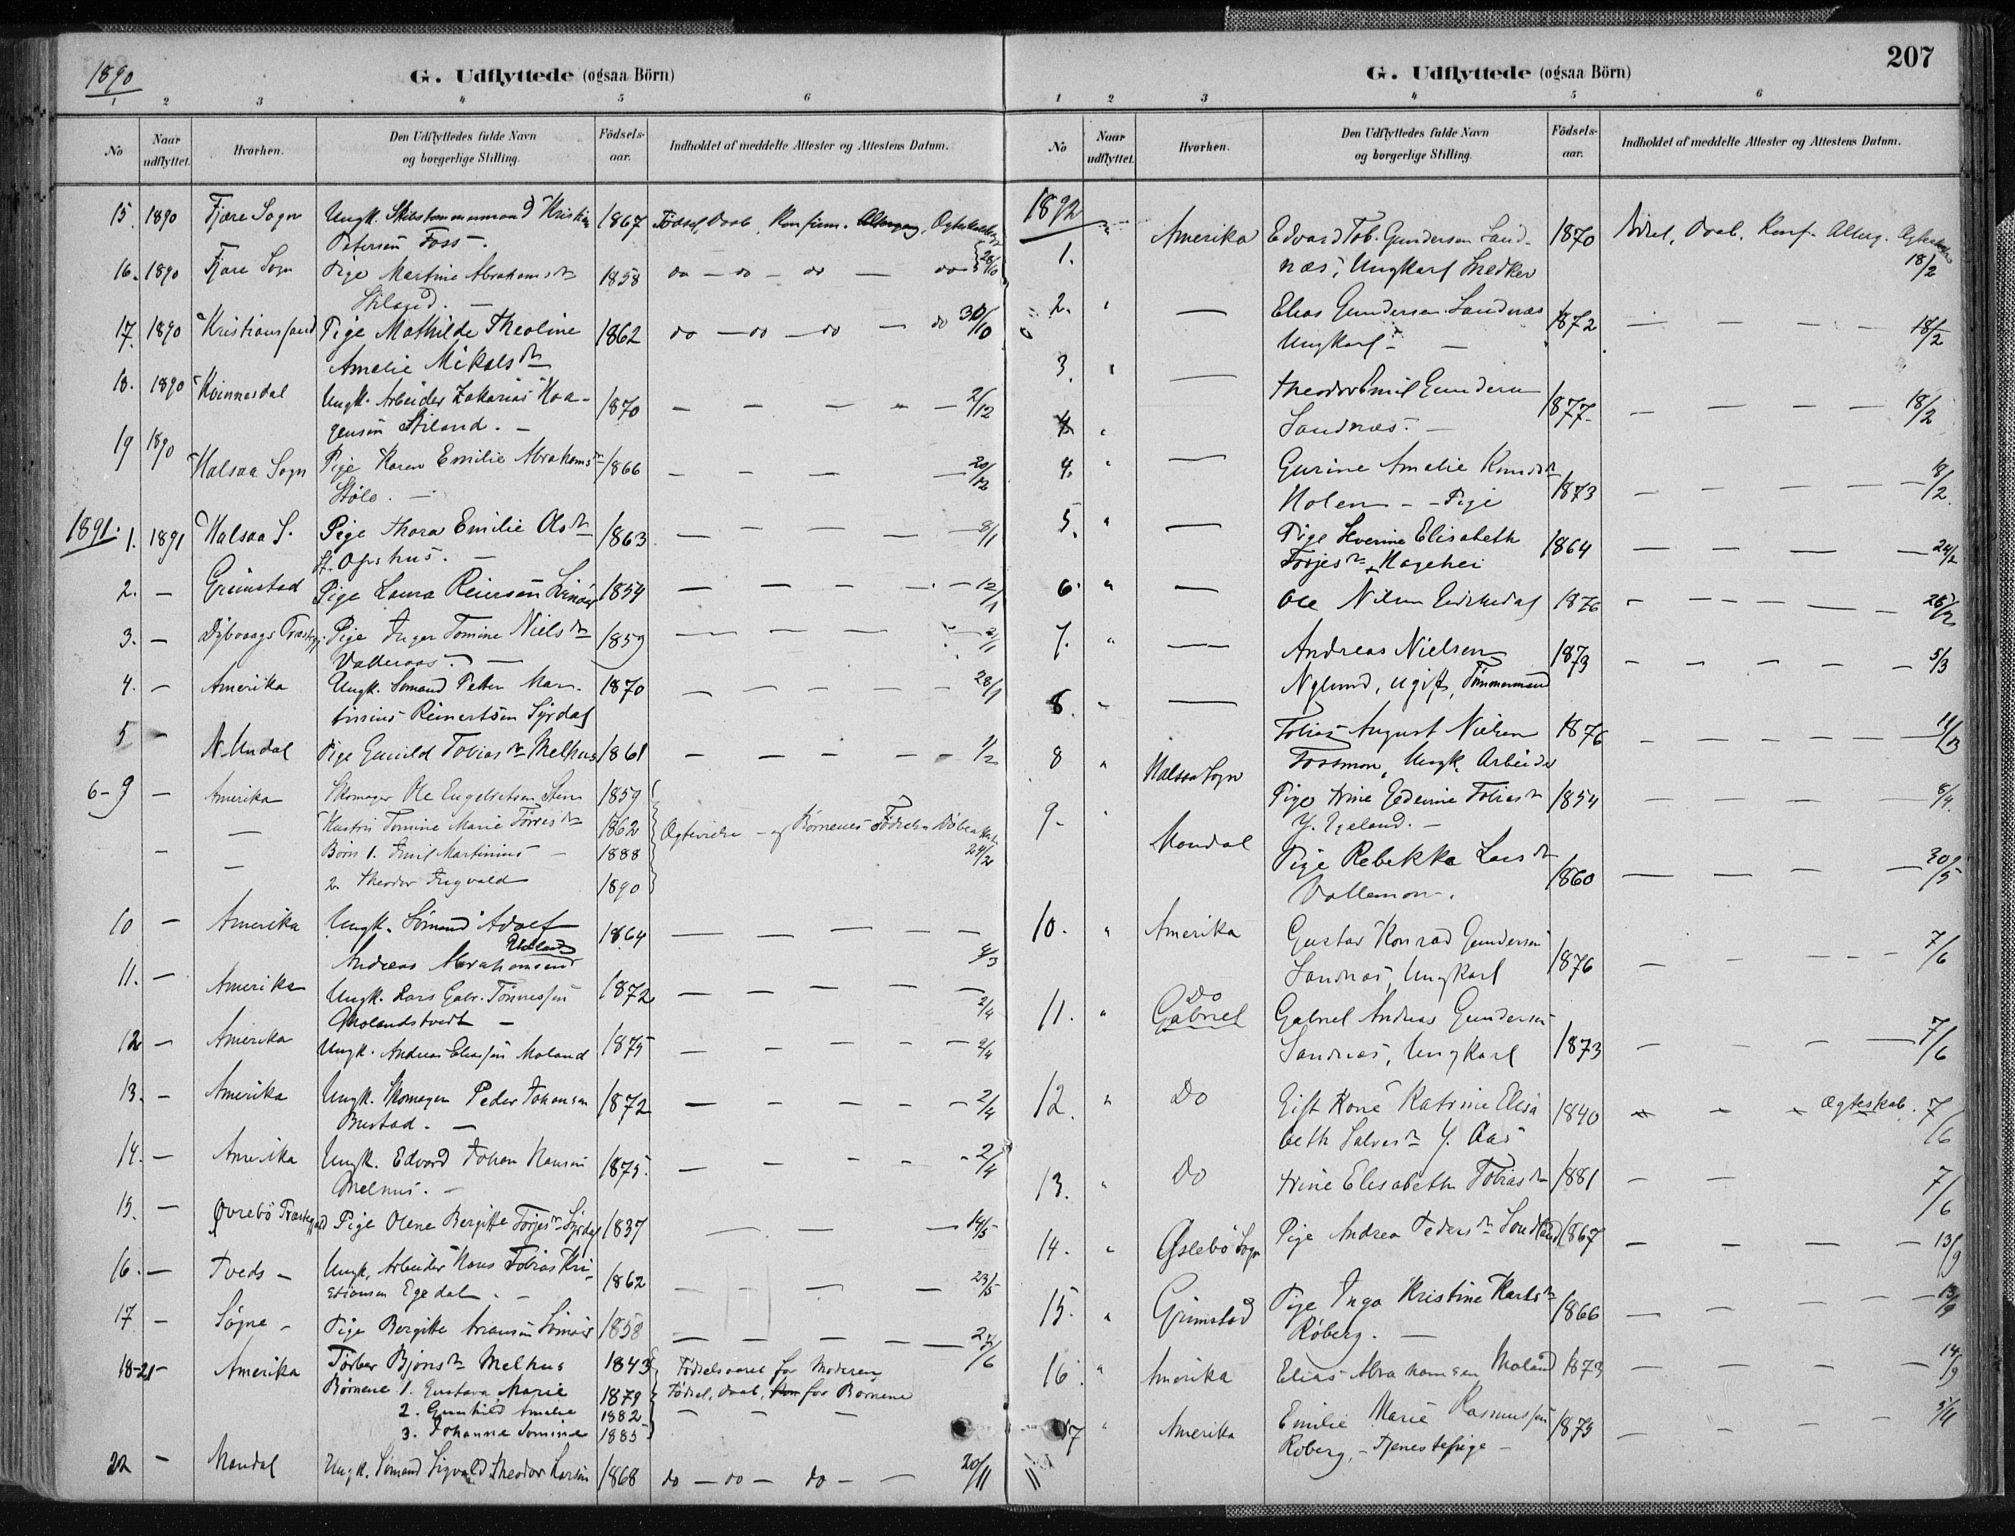 1890
G. Udflyttede (ogsaa Börn)
1 2 3 4 5 6
No
Naar udflyttet.
Hvorhen.
Den Udflyttedes fulde Navn og borgerlige Stilling.
Födselsaar.
Indholdet af meddelte Attester og Attestens Datum.
15. 1890 Fjære Sogn Ungk. Skibstømmermand Kristian 1867 Födsel, Daab, Konfirm. Altergang, Ægteskabs
Petersen Foss. 28/10
16. 1890 Fjære Sogn Pige Martine Abrahamsdtr 1858 do — do — do — do
17. 1890 Kristiansand Pige Mathilde Theoline 1862 do — do — do — do 30/10
Amalie Mikalsdtr
18. 1890 Kvinnesdal Ungk. Arbeider Zakarias Haa- 1870 — — — — 2/12
gensen Stiland. —
19 1890 Halsaa Sogn Pige Karen Emilie Abrahamsdtr 1866 — — — 20/12
Støle. —
1891. 1. 1891 Halsaa S. Pige Thora Emilie Olsdtr 1863 — — — 8/1
2. — Grimstad Pige Laura Reiersen 1854 — — — 12/1
3. — Dybvaags Præstegj. Pige Inger Tomine Nielsdtr 1859 — — —
4. — Amerika Ungk. Sømand Petter Mar- 1870 — — — 28/1
tinius Reinertsen Syrdal
5 — N. Undal Pige Gunild Tobiasdtr Melhus 1861 — — —
6-9 — Amerika Skomager Ole Engelretsen 1859
— Hustru Tomine Marie Torresdtr 1862 Ægtevielse — og Börnenes Födsels
— Børn 1. Emil Martinius — 1888 24/2
2. Theodor Ingvald 1890
10 — Amerika Ungk. Sømand Adolf 1864 — — — —
Andreas Abrahamsen 4/3
11. — Amerika Ungk. Lars Gabr. Tønnessen 1872 — — — 2/4
Molandstvedt —
12 — Amerika Ungk. Andreas Eliassen Moland 1875 — — — 2/4
13. — Amerika Ungk. Skomager Peder Johansen 1872 — — — 2/4
Bustad. —
14. — Amerika Ungk. Edvard Johan Hansen 1875. — — — 2/4
Melhus. —
15. — Øvrebö Præstegjeld Pige Olene Bergitte Torjesdtr Syrdal 1837 — — 14/5
16. — Tveds — Ungk. Arbeider Hans Tobias Kri- 1862 — — — 23/5
stiansen Egedal. —
17 — Søgne — Pige Bergitte 1858 — — — 27/6
18-21 — Amerika Torbor Bjørnsdtr Melhus 1843 Födselsaaret for Moderen
Børnene 1. Gustava Marie 1879 Födsel, Daab, for Börnene
2. Gunhild Amalie 1882 — — —
3. Johanna Tomine 1885
22 — Mandal Ungk. Sømand Sigvald Theodor Larsen 1868 do — do — do — — 20/11
207
G. Udflyttede (ogsaa Börn)
1 2 3 4 5 6
No
Naar udflyttet.
Hvorhen.
Den Udflyttedes fulde Navn og borgerlige Stilling.
Födselsaar.
Indholdet af meddelte Attester og Attestens Datum.
1892
1. Amerika Edvard Tob. Gundersen Sand- 1870 Födsel, Daab, Konf. Alterg.
næs, Ungkarl Snedker 18/2
2. " — Elias Gundersen Sandnæs 1872 — — — — 18/2
Ungkarl —
3. " — Theodor Emil Gundersen 1877 — — — — 18/2
Sandnæs. —
4. " — Gurine Amalie Knudsdtr 1873 — — — — 18/2
Holem — — Pige
5. " — Pige Severine Elisabeth 1864 — — — — 24/2
Torjesdtr Hagehei
6. " — Ole Nilsen 1876 — — — —
7. " — Andreas Nielsen 1873 — — — — 5/3
Nylund, ugift, Tömmermand
8. " — Tobias August Nielsen 1876 — — — — 11/3
Fossmon, Ungk. Arbeider
8 " Halsaa Sogn Pige Trine Gedeine Tobiasdtr 1854 — — — — 8/4.
Y. Egeland. —
9. " Mandal Pige Rebekka Larsdtr 1860 — — — — 30/5
Vallemon.
10. " Amerika Gustav Konrad Gundersen 1876 — — — — 7/6
Sandnæs, Ungkarl
11. " Do Gabriel Gabriel Andreas Gundersen 1873 — — — — 7/6
Sandnæs, Ungkarl
12. " Do Gift Kone Katrine Elisa 1840 — — — Ægteskab. 7/6
beth Salvesdtr Y. Aas
13. " Do Trine Elisabeth Tobiasdtr 1881 — — 7/6
14. " Øslebö Sogn Pige Andrea Pedersdtr Sandland 1867 — — — — 13/9
15. " Grimstad Pige Inga Kristine Karlsdtr 1866 — — — — 13/9
Røberg. —
16. " Amerika Elias Abrahamsen Moland 1873 — — — — 14/9
17 " Amerika Emilie Marie Rasmussen 1873 — — — —
Røberg, — Tjenestepige —